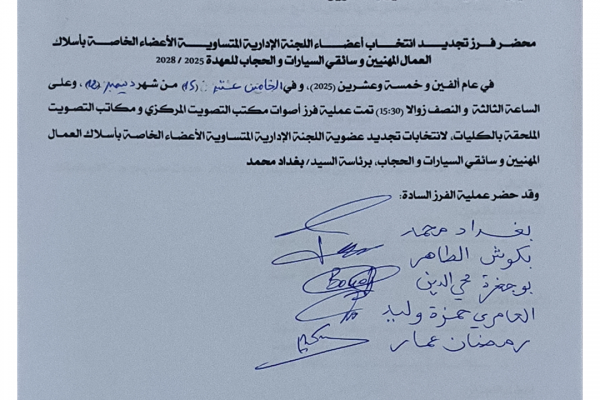 محضر فرز تجديد انتخاب أعضاء اللجنة الإدارية المتساوية الأعضاء الخاصة بأسلاك
العمال المهنيين و سائقي السيارات و الحجاب للعهدة 2025 / 2028
في عام ألفين و خمسة وعشرين (2025)، و في الخامس عشر (15) من شهر ديسمبر (12)، وعلى
الساعة الثالثة و النصف زوالا (15:30) تمت عملية فرز أصوات مكتب التصويت المركزي و مكاتب التصويت
الملحقة بالكليات، لانتخابات تجديد عضوية اللجنة الإدارية المتساوية الأعضاء الخاصة بأسلاك العمال
المهنيين و سائقي السيارات و الحجاب، برئاسة السيد/ بغداد محمد
وقد حضر عملية الفرز السادة:
بغداد محمد
بكوش الطاهر
بوجغرة محي الدين
العامري حمزة وليد
رمضان عمار